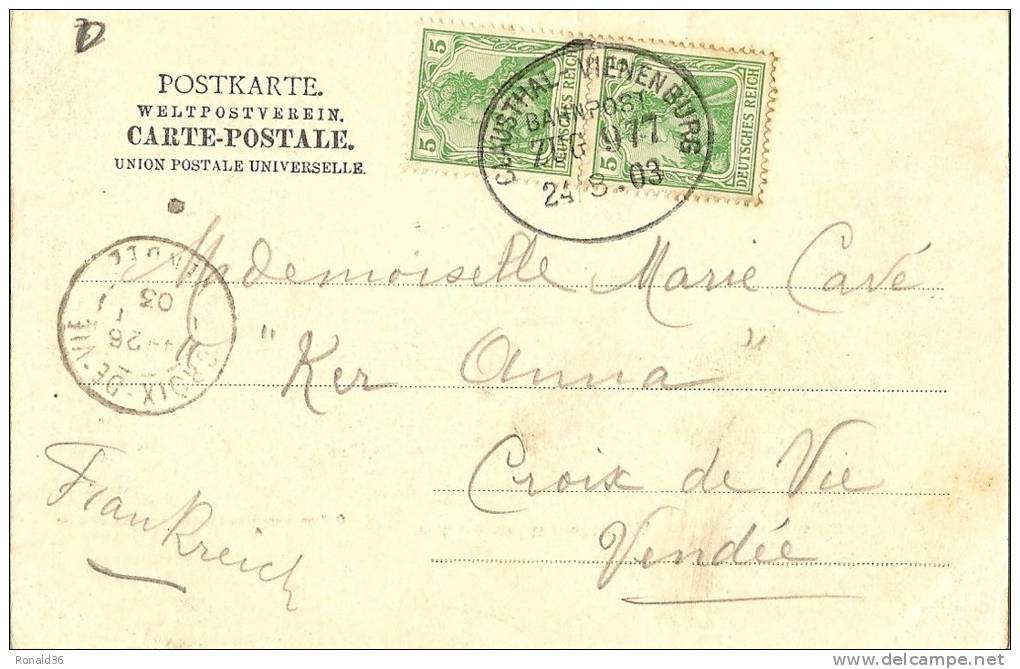 POSTKARTE.
WELTPOSTVEREIN.
CARTE-POSTALE.
UNION POSTALE UNIVERSELLE.
5
5
DEUTSCHES REICH
5
5
DEUTSCHES REICH
CLAUSTHAL VIENENBURG
BAHNPOST
ZUG 977
24 8 03
VENDÉE
CROIX-DE-VIE
26
03
Mademoiselle Marie Cavé
"Ker Anna"
Croix de Vie
Vendée
Frankreich
Ronald36
delcampe.net